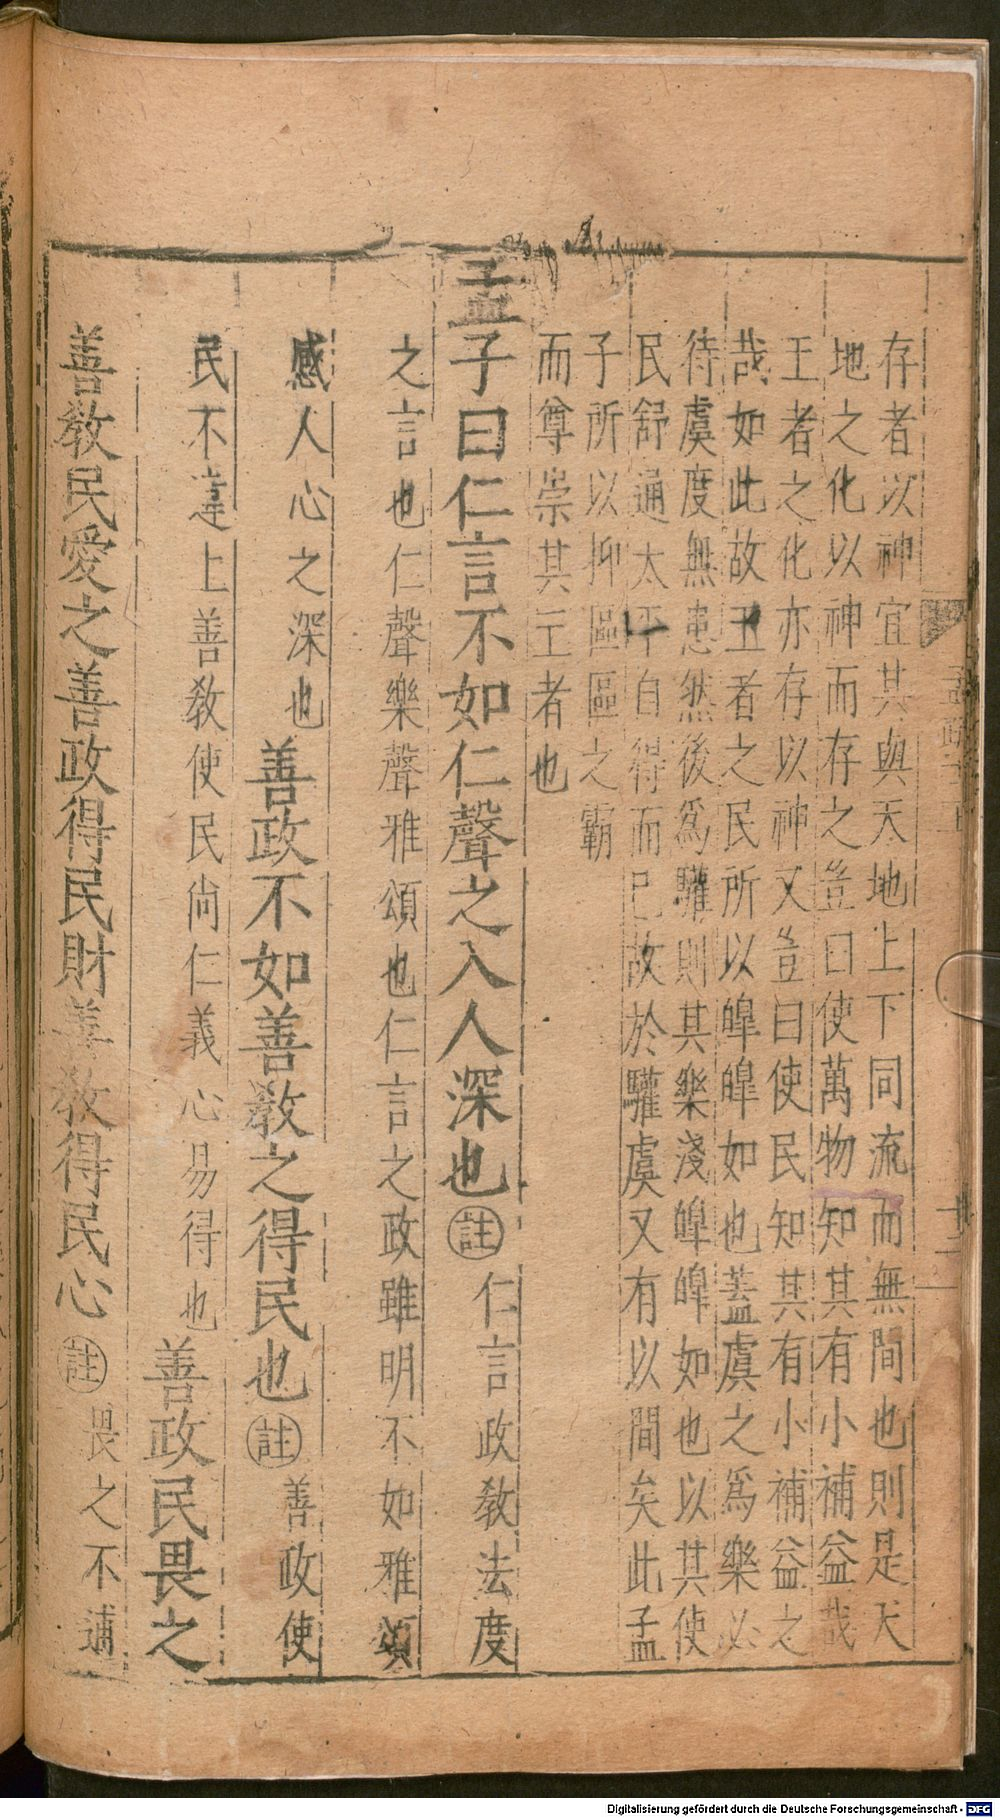 存者以神宜其與天地上下同流而無間也則是天
地之化以神而存之豈曰使萬物知其有小補益哉
王者之化亦存以神又豈曰使民知其有小補益之
哉如此故王者之民所以皥皥如也蓋虞之為樂必
待虞度無患然後為驩則其樂淺皥皥如也以其使
民舒通太平自得而已故於驩虞又有以間矣此孟
子所以抑區區之霸
而尊崇其王者也
孟子曰仁言不如仁聲之入人深也註仁言政教法度
之言也仁聲樂聲雅頌也仁言之政雖明不如雅頌
感人心之深也善政不如善教之得民也註善政使
民不違上善教使民尚仁義心易得也善政民畏之
善教民愛之善政得民財善教得民心註畏之不逋
Digitalisierung gefördert durch die Deutsche Forschungsgemeinschaft - DFG